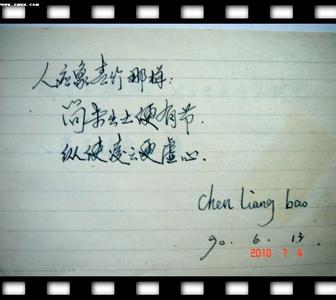 人应象青竹那样:
尚未出土便有节.
纵使凌云更虚心.
chen liang bao
90. 6. 13
2010 7 4